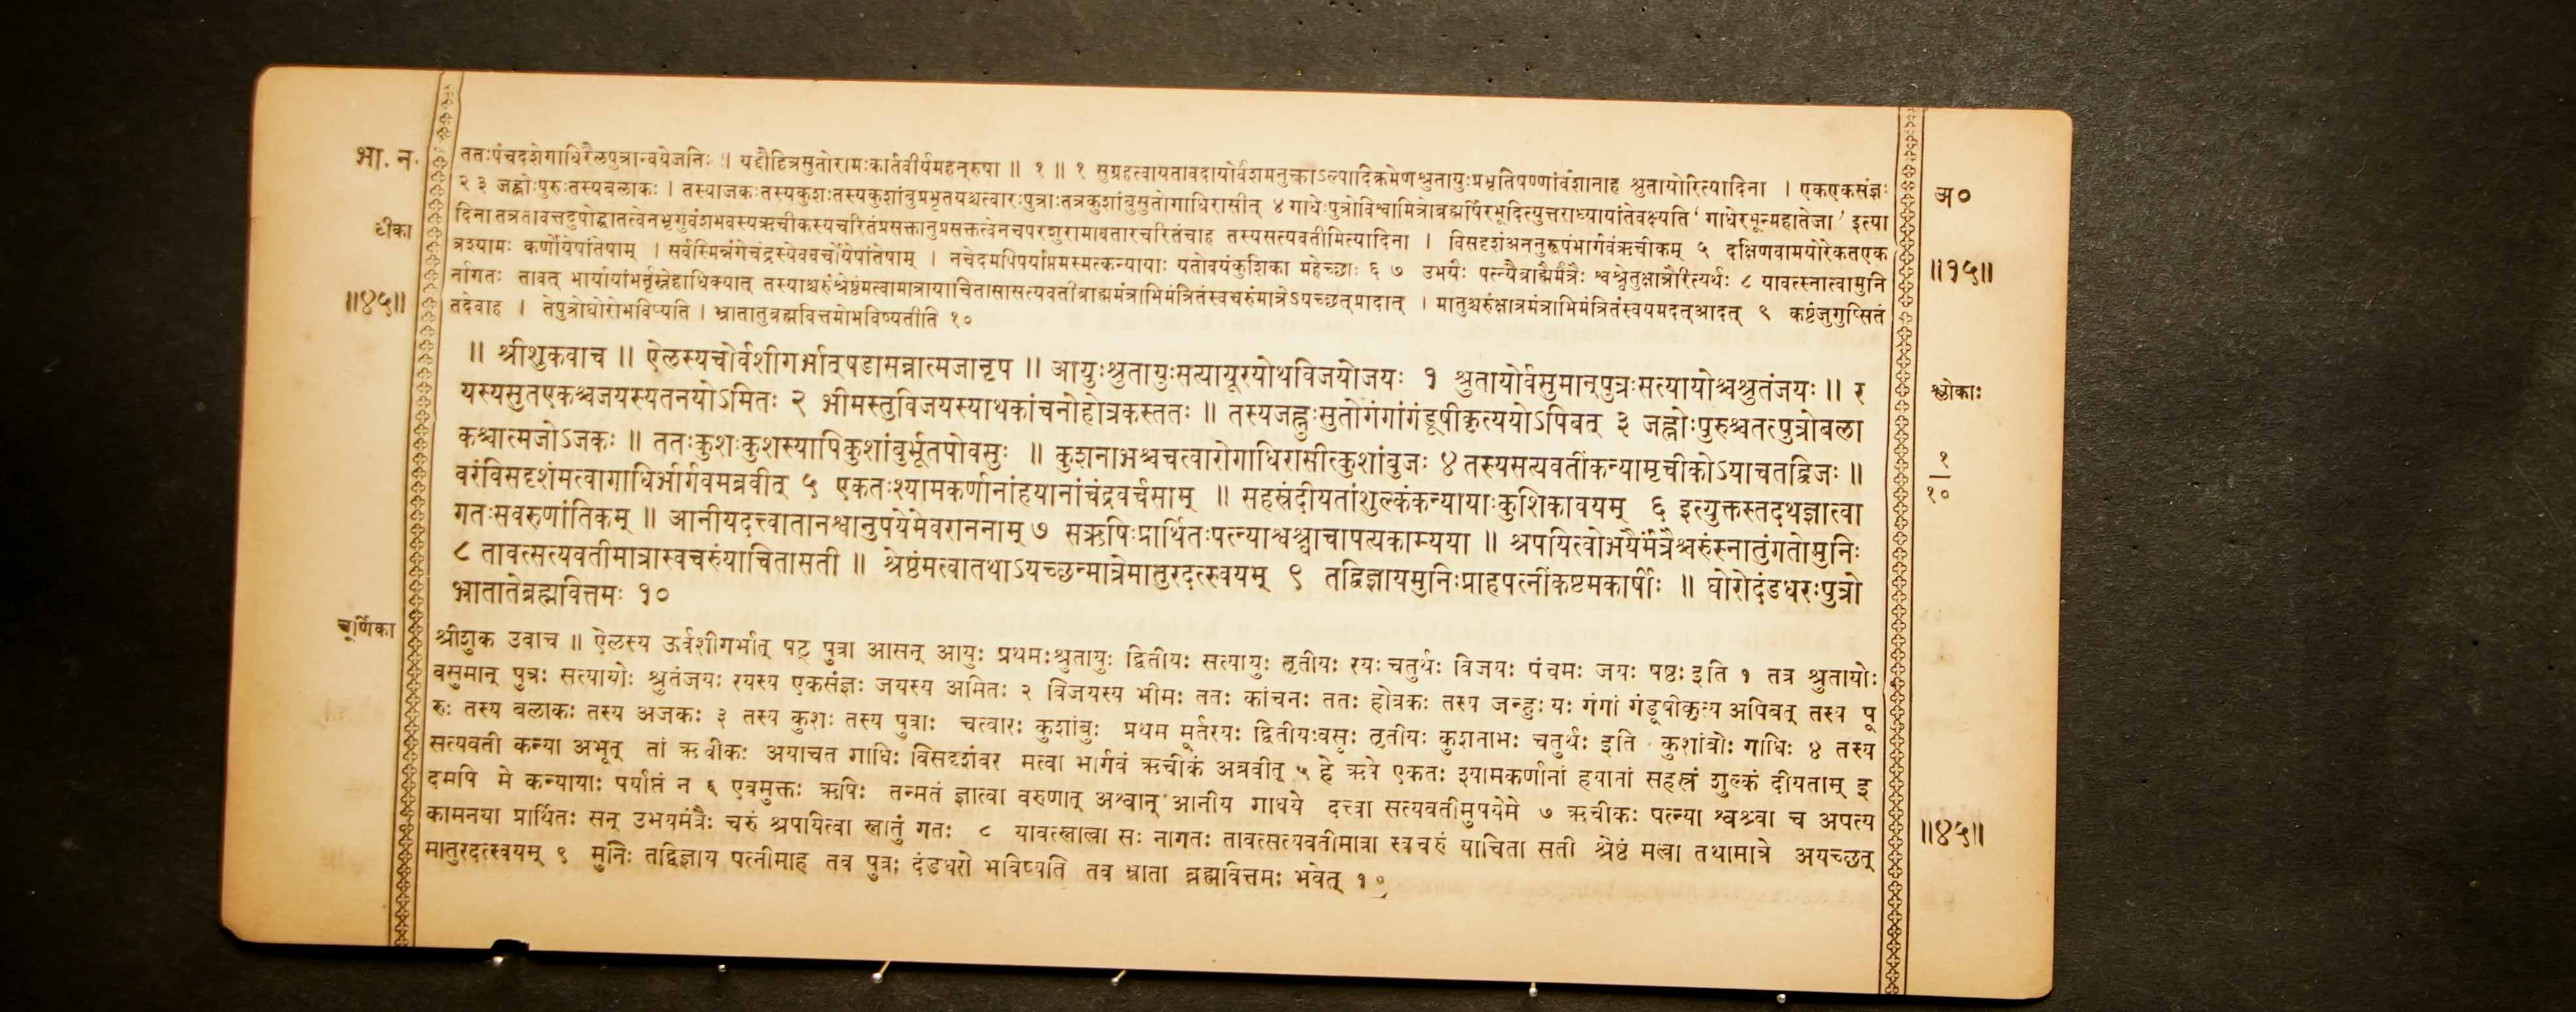 भा. न.
ततःपंचदशेगाधिरैलपुत्रान्वयेजनिः । यद्दौहित्रसुतोरामःकार्तवीर्यमहन्रुषा ॥ १ ॥ १ सुग्रहत्वायतावदायोर्वंशमनुक्त्वाऽल्पादिक्रमेणश्रुतायुःप्रभृतिपण्णांवंशानाह श्रुतायोरित्यादिना । एकएकसंज्ञः
२ ३ जह्नोःपुरुःतस्यबलाकः । तस्याजकःतस्यकुशःतस्यकुशांबुप्रभृतयश्चत्वारःपुत्राःतत्रकुशांबुसुतोगाधिरासीत् ४ गाधेःपुत्रोविश्वामित्रोब्रह्मर्षिरभूदित्युत्तराध्यायांतेवक्ष्यति ‘ गाधेरभून्महातेजा ’ इत्या
टीका
दिना तत्रतावत्तदुपोद्घातत्वेनभृगुवंशभवस्यऋचीकस्यचरितंप्रसक्तानुप्रसक्तत्वेनचपरशुरामावतारचरितंचाह तस्यसत्यवतीमित्यादिना । विसदृशंअननुरूपंभार्गवंऋचीकम् ५ दक्षिणवामयोरेकतएक
त्रश्यामः कर्णोयेषांतेषाम् । सर्वस्मिन्नंगेचंद्रस्येववर्चोयेषांतेषाम् । नचेदमपिपर्याप्तमस्मत्कन्यायाः यतोवयंकुशिका महेच्छाः ६ ७ उभयैः पत्न्यैब्राह्मैर्मंत्रैः श्वश्र्वैतुक्षात्रैरित्यर्थः ८ यावत्स्नात्वामुनि
॥४५॥
र्नागतः तावत् भार्यायांभर्तृस्नेहाधिक्यात् तस्याश्चरुंश्रेष्ठंमत्वामात्रायाचितासासत्यवतीब्राह्ममंत्राभिमंत्रितंस्वचरुंमात्रेऽयच्छत्प्रादात् । मातुश्चरुंक्षात्रमंत्राभिमंत्रितंस्वयमदत्आदत् ९ कष्टंजुगुप्सितं
तदेवाह । तेपुत्रोघोरोभविष्यति । भ्रातातुब्रह्मवित्तमोभविष्यतीति १०
॥ श्रीशुकवाच ॥ ऐलस्यचोर्वशीगर्भात्षडासन्नात्मजानृप ॥ आयुःश्रुतायुःसत्यायूरयोथविजयोजयः १ श्रुतायोर्वसुमान्पुत्रःसत्यायोश्चश्रुतंजयः ॥ र
यस्यसुतएकश्चजयस्यतनयोऽमितः २ भीमस्तुविजयस्याथकांचनोहोत्रकस्ततः ॥ तस्यजह्नुःसुतोगंगांगंडूषीकृत्ययोऽपिबत् ३ जह्नोःपुरुश्चतत्पुत्रोबला
कश्चात्मजोऽजकः ॥ ततःकुशःकुशस्यापिकुशांबुर्भूतपोवसुः ॥ कुशनाभश्चचत्वारोगाधिरासीत्कुशांबुजः ४ तस्यसत्यवतींकन्यामृचीकोऽयाचतद्विजः ॥
वरंविसदृशंमत्वागाधिर्भार्गवमब्रवीत् ५ एकतःश्यामकर्णानांहयानांचंद्रवर्चसाम् ॥ सहस्रंदीयतांशुल्कंकन्यायाःकुशिकावयम् ६ इत्युक्तस्तदथज्ञात्वा
गतःसवरुणांतिकम् ॥ आनीयदत्त्वातानश्वानुपयेमेवराननाम् ७ सऋषिःप्रार्थितःपत्न्याश्वश्र्वाचापत्यकाम्यया ॥ श्रपयित्वोभयैर्मंत्रैश्चरुंस्नातुंगतोमुनिः
८ तावत्सत्यवतीमात्रास्वचरुंयाचितासती ॥ श्रेष्ठंमत्वातथाऽयच्छन्मात्रेमातुरदत्स्वयम् ९ तद्विज्ञायमुनिःप्राहपत्नींकष्टमकार्षीः ॥ घोरोदंडधरःपुत्रो
भ्रातातेब्रह्मवित्तमः १०
चूर्णिका
श्रीशुक उवाच ॥ ऐलस्य ऊर्वशीगर्भात् षट् पुत्रा आसन् आयुः प्रथमःश्रुतायुः द्वितीयः सत्यायुः तृतीयः रयः चतुर्थः विजयः पंचमः जयः षष्ठः इति १ तत्र श्रुतायोः
वसुमान् पुत्रः सत्यायोः श्रुतंजयः रयस्य एकसंज्ञः जयस्य अमितः २ विजयस्य भीमः ततः कांचनः ततः होत्रकः तस्य जन्हुः यः गंगां गंडूषीकृत्य अपिबत् तस्य पू
रुः तस्य बलाकः तस्य अजकः ३ तस्य कुशः तस्य पुत्राः चत्वारः कुशांबुः प्रथम मूर्तरयः द्वितीयःवसुः तृतीयः कुशनाभः चतुर्थः इति कुशांबोः गाधिः ४ तस्य
सत्यवती कन्या अभूत् तां ऋचीकः अयाचत गाधिः विसदृशंवर मत्वा भार्गवं ऋचीकं अब्रवीत् ५ हे ऋषे एकतः श्यामकर्णानां हयानां सहस्रं शुल्कं दीयताम् इ
दमपि मे कन्यायाः पर्याप्तं न ६ एवमुक्तः ऋषिः तन्मतं ज्ञात्वा वरुणात् अश्वान् आनीय गाधये दत्त्वा सत्यवतीमुपयेमे ७ ऋचीकः पत्न्या श्वश्र्वा च अपत्य
कामनया प्रार्थितः सन् उभयमंत्रैः चरुं श्रपयित्वा स्नातुं गतः ८ यावत्स्नात्वा सः नागतः तावत्सत्यवतीमात्रा स्वचरुं याचिता सती श्रेष्ठं मत्वा तथामात्रे अयच्छत्
मातुरदत्स्वयम् ९ मुनिः तद्विज्ञाय पत्नीमाह तव पुत्रः दंडधरो भविष्यति तव भ्राता ब्रह्मवित्तमः भवेत् १०
अ०
॥१५॥
श्लोकाः
१
१०
॥४५॥